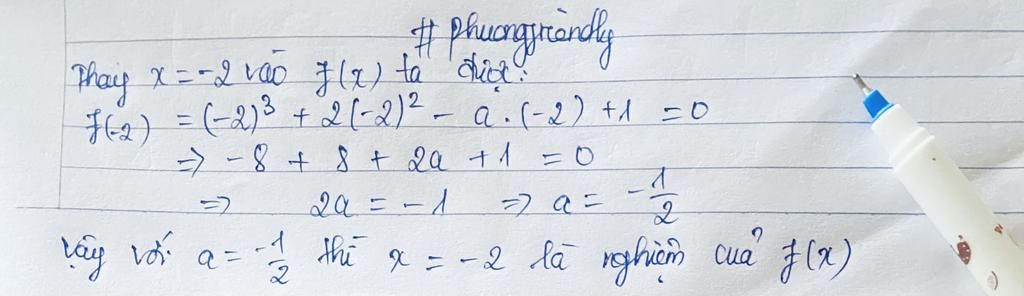 # phuongfriendly
Thay x = -2 vào f(x) ta được:
f(-2) = (-2)³ + 2(-2)² - a . (-2) + 1 = 0
=> -8 + 8 + 2a + 1 = 0
=> 2a = -1 => a = -1/2
Vậy với a = -1/2 thì x = -2 là nghiệm của f(x)